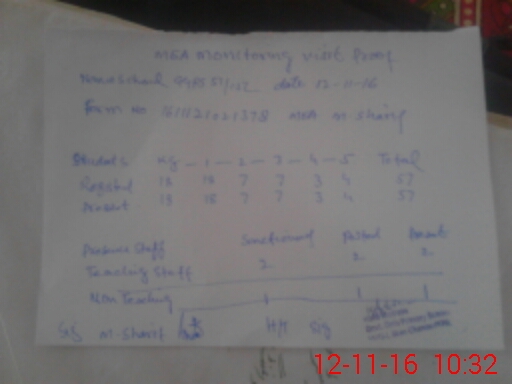 MEA Monitoring visit Proof
date 12-11-16
Form No MEA M-Sharif
Students KG - 1 - 2 - 3 - 4 - 5 Total
Registred 18 18 7 7 3 4 57
Present 18 18 7 7 3 4 57
Staff Sanctioned Posted Present
Teaching Staff 2 2 2
Non Teaching 1 1 1
M-Sharif H/T Sig
12-11-16 10:32